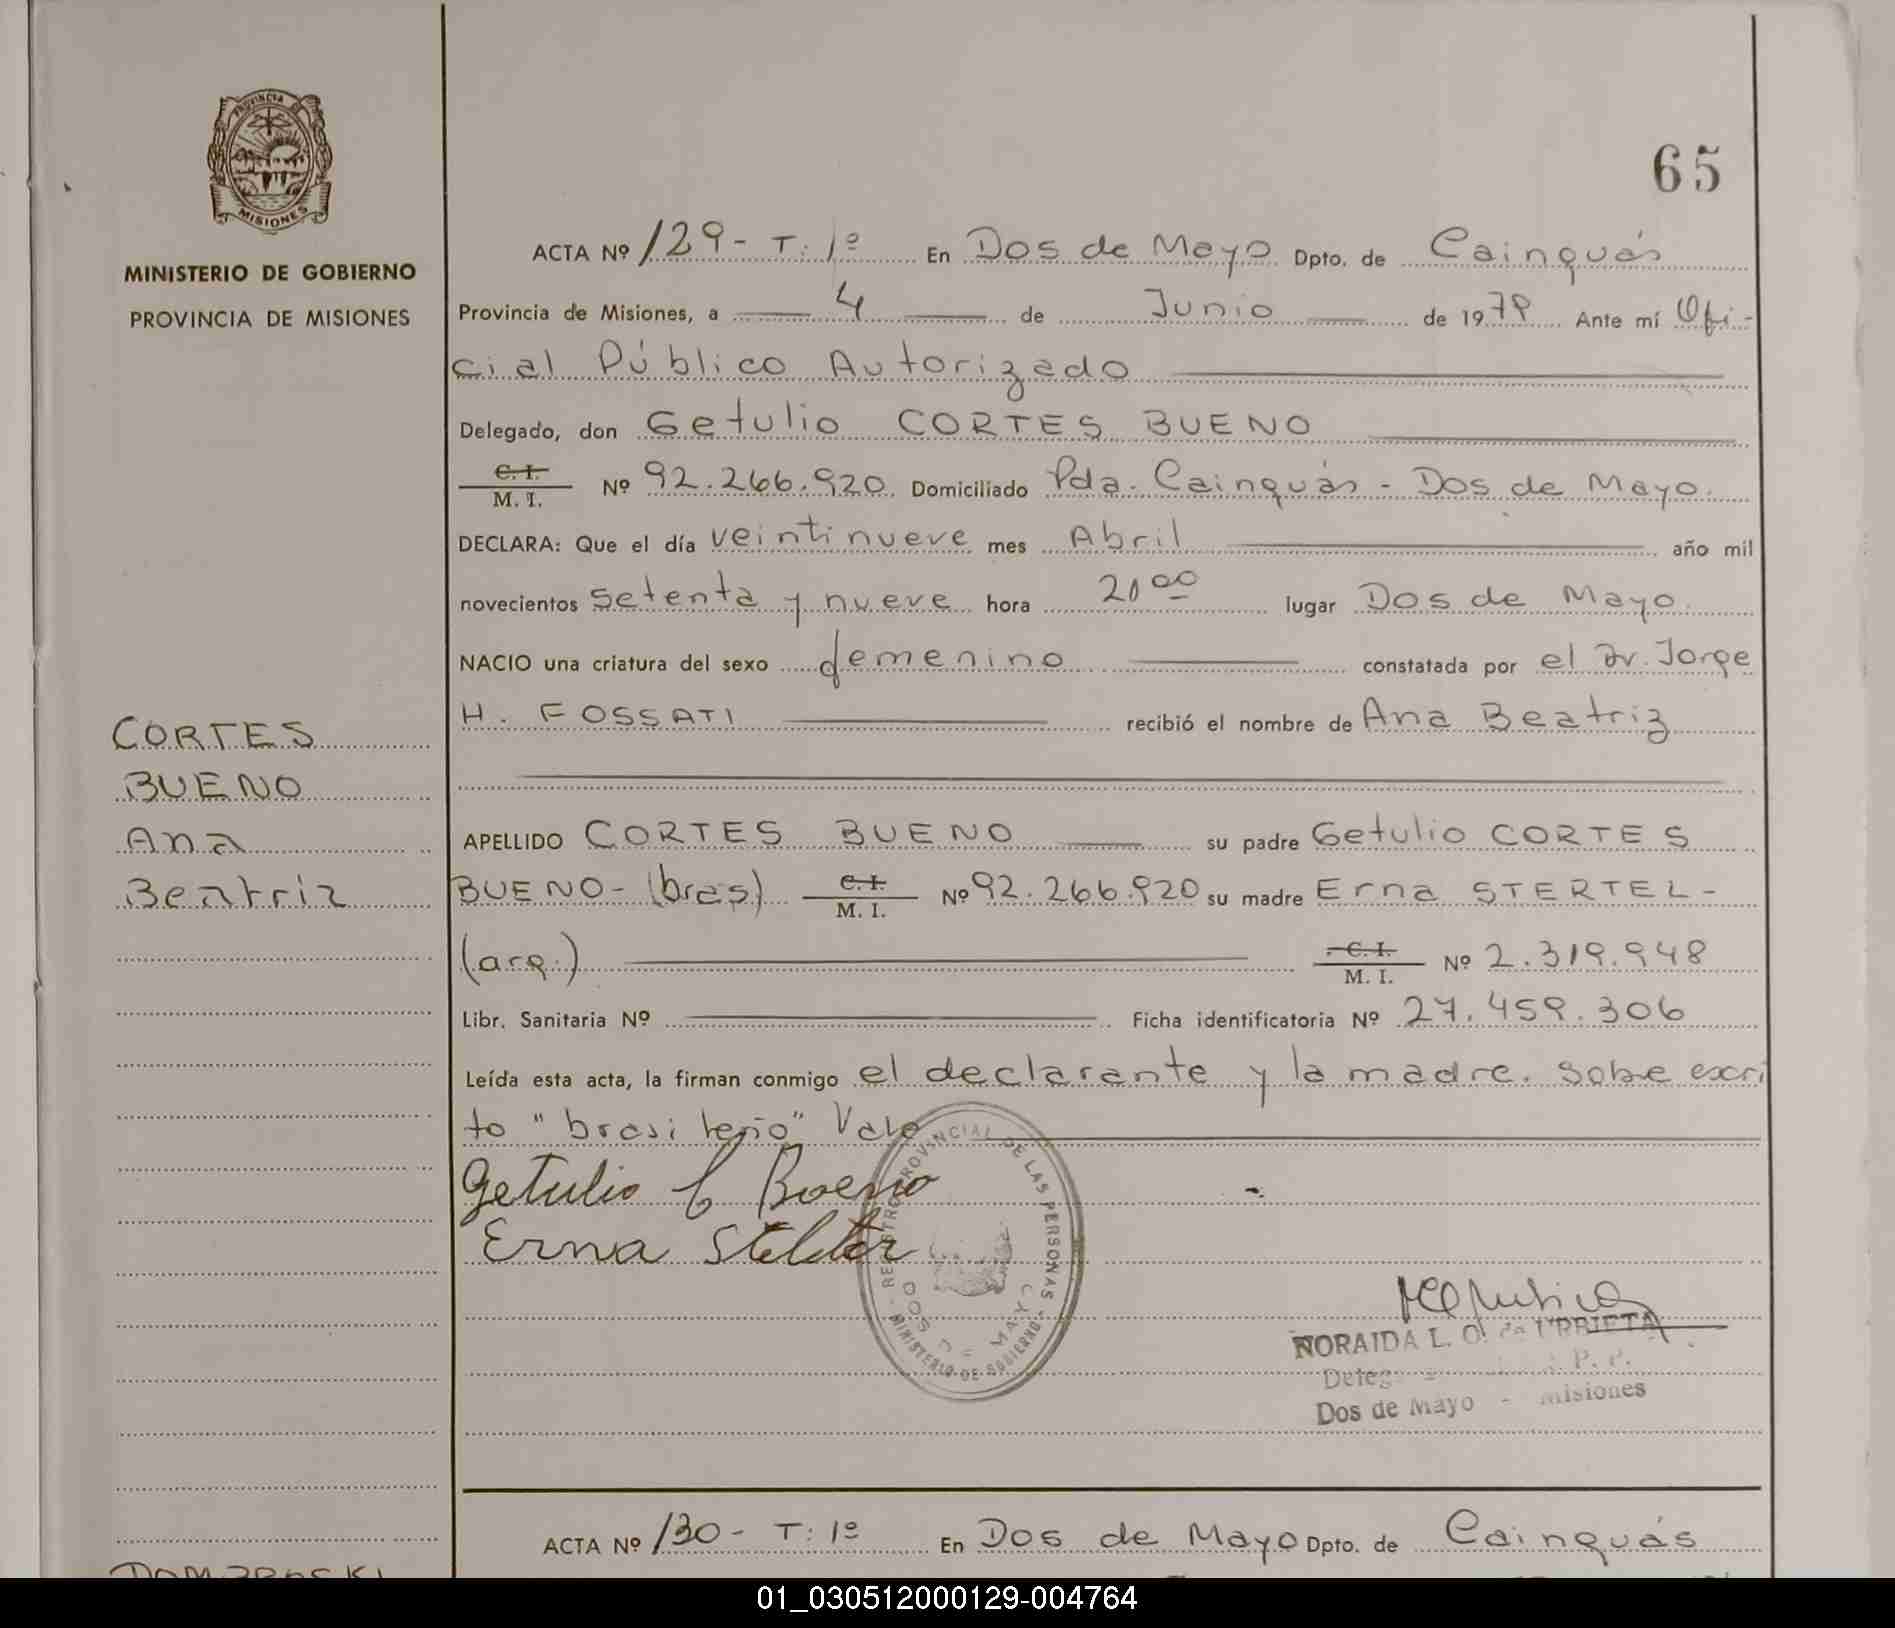 PROVINCIA DE
MISIONES
MINISTERIO DE GOBIERNO
PROVINCIA DE MISIONES
65
ACTA Nº 129 - T: 1º En Dos de Mayo Dpto. de Cainguás
Provincia de Misiones, a 4 de Junio de 1979 Ante mí Ofi-
cial Público Autorizado
Delegado, don Getulio CORTES BUENO
C. I.
M. I. Nº 92.266.920 Domiciliado Pda. Cainguás - Dos de Mayo.
DECLARA: Que el día veintinueve mes Abril año mil
novecientos setenta y nueve hora 20 00 lugar Dos de Mayo.
NACIO una criatura del sexo femenino constatada por el Dr. Jorge
H. FOSSATI recibió el nombre de Ana Beatriz
CORTES
BUENO
Ana
Beatriz
APELLIDO CORTES BUENO su padre Getulio CORTES
BUENO - (bras) C. I. M. I. Nº 92.266.920 su madre Erna STERTEL -
(arg.) C. I. M. I. Nº 2.319.948
Libr. Sanitaria Nº Ficha identificatoria Nº 27.459.306
Leída esta acta, la firman conmigo el declarante y la madre. Sobre escri
to "brasileño" Vale
Getulio C Bueno
Erna Stelter
REGISTRO PROVINCIAL DE LAS PERSONAS
DOS DE MAYO
MINISTERIO DE GOBIERNO
NORAIDA L. O. de URBIETA
P. P.
Dos de Mayo - Misiones
ACTA Nº 130 - T: 1º En Dos de Mayo Dpto. de Cainguás
01_030512000129-004764